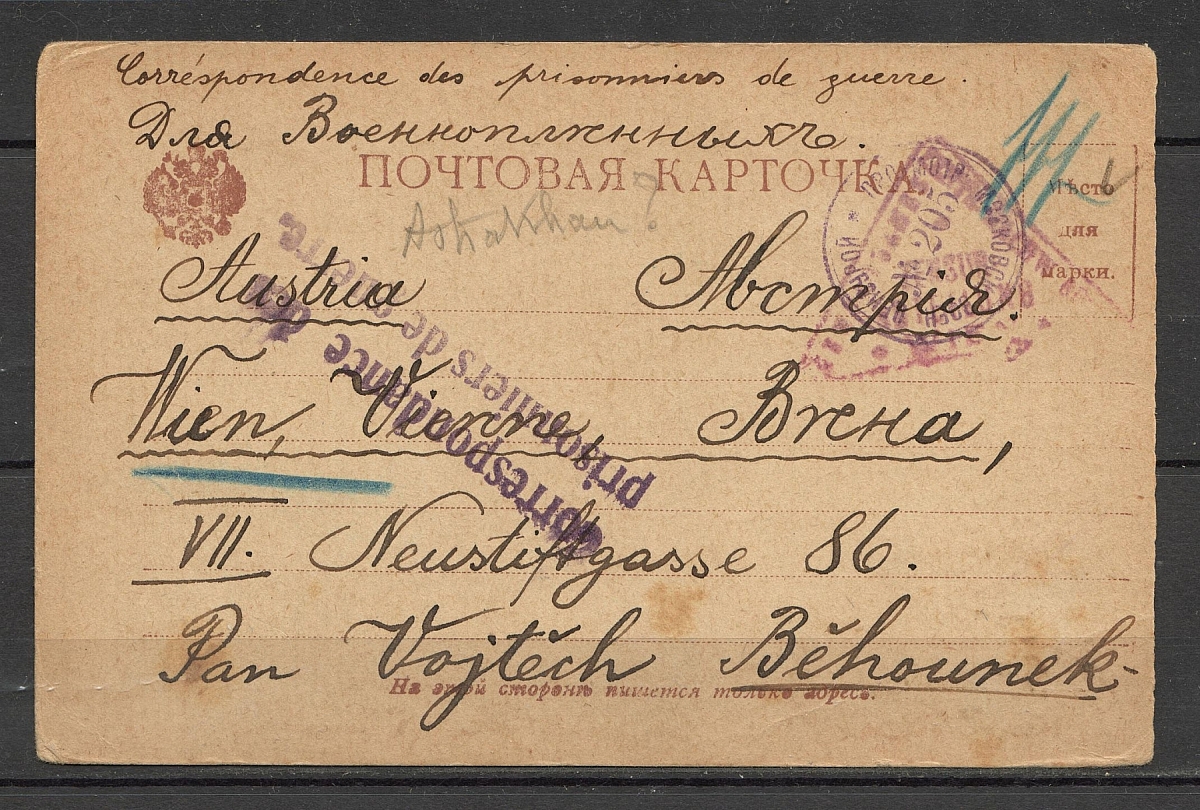 Corréspondence des prisonniers de guerre.
Для Военноплѣнныхъ.
ПОЧТОВАЯ КАРТОЧКА
Мѣсто
для
марки.
№ 205
Austria Австрія.
Correspondance des
prisonniers de guerre.
Wien, Vienne, Вѣна,
VII. Neustiftgasse 86.
Pan Vojtěch Běhounek
На этой сторонѣ пишется только адресъ.